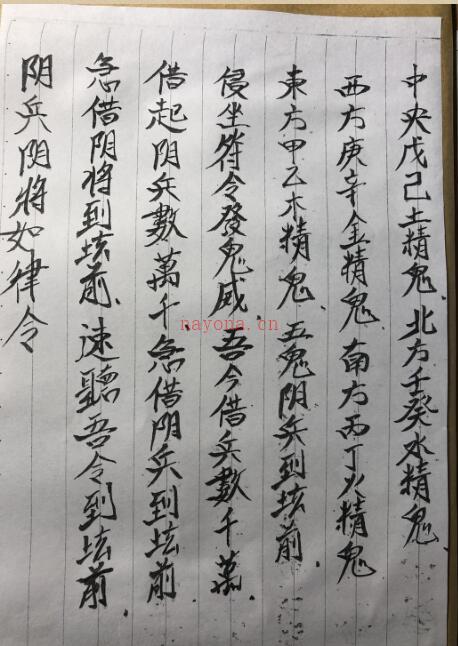 中央戊己土精鬼.北方壬癸水精鬼.
西方庚辛金精鬼.南方丙丁火精鬼
東方甲乙木精鬼.五鬼阴兵到坛前.
侵坐符令發鬼威.吾今借兵數千萬
借起阴兵數萬千.急借阴兵到坛前
急借阴将到坛前.速聽吾令到坛前.
阴兵阴將如律令
nayona.cn